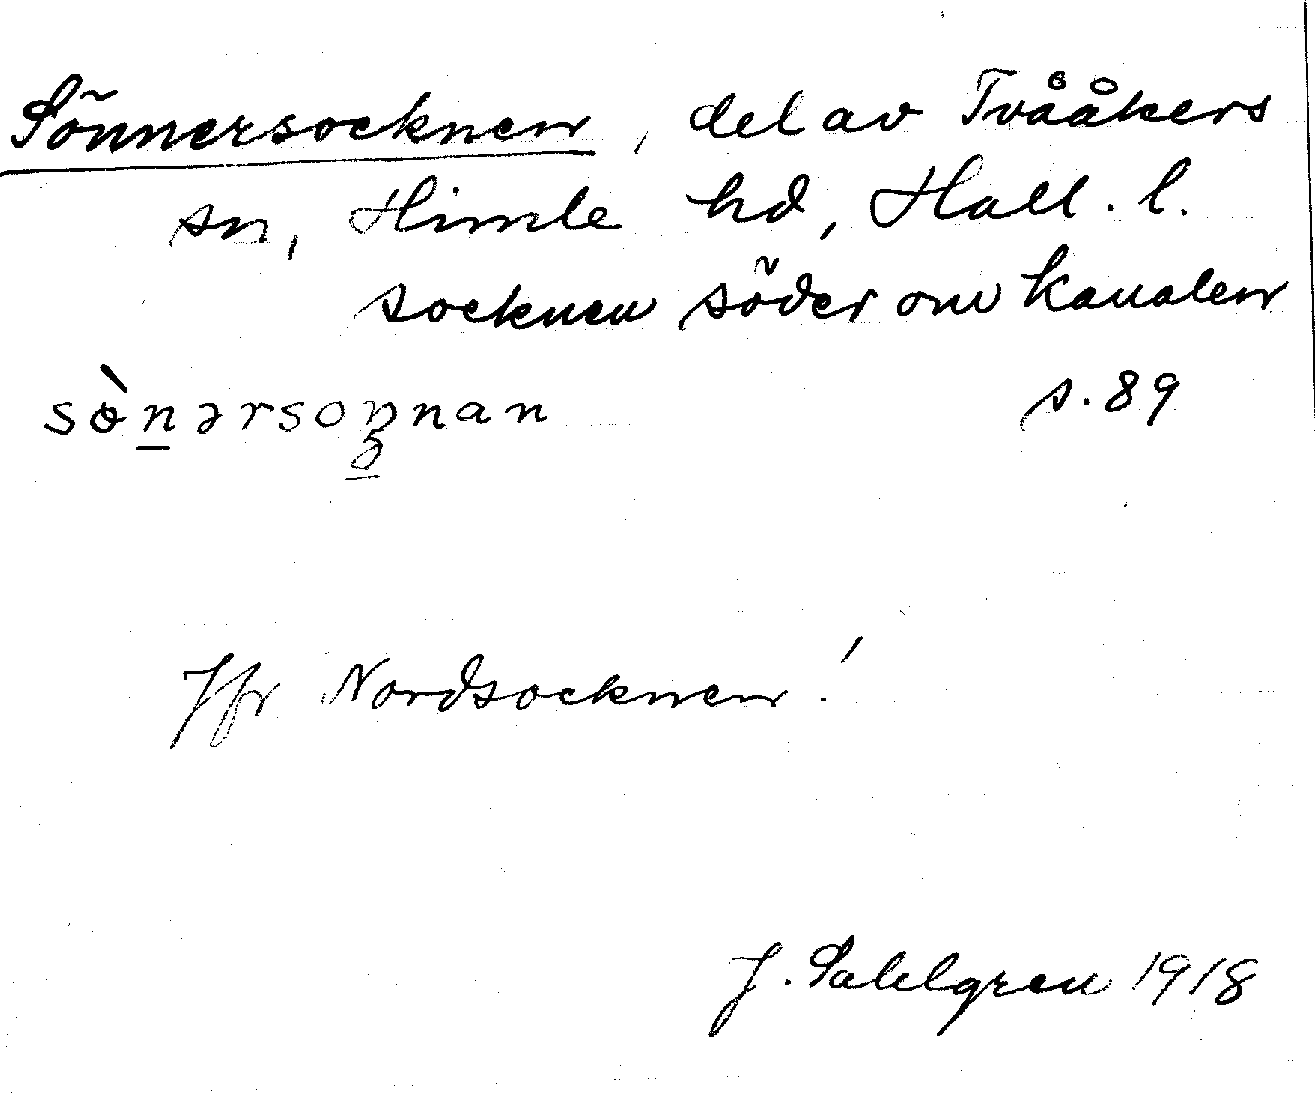 Sönnersocknen, del av Tvååkers
sn, Himle hd, Hall. l.
socknen söder om kanalen
s. 89
Jfr Nordsocknen!
J. Sahlgren 1918